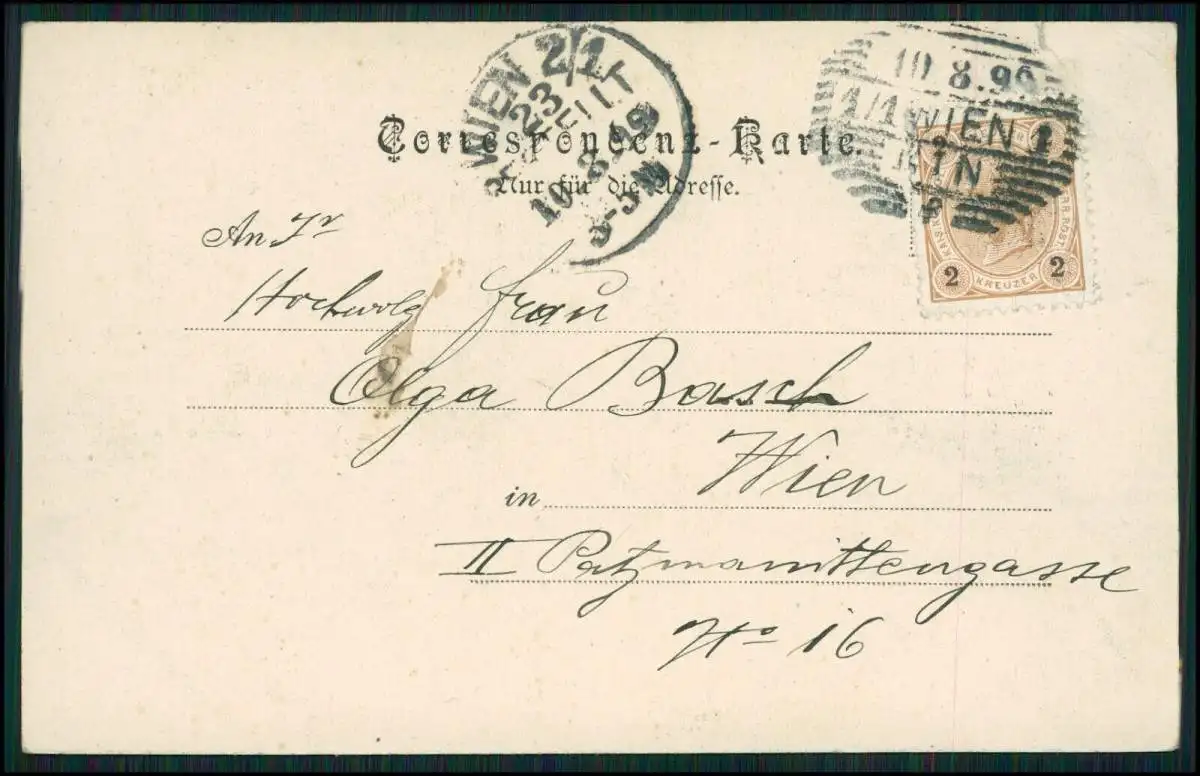 WIEN 2/1
23
10 8 99
10.8.99
1/1 WIEN 1
Correspondenz-Karte.
Nur für die Adresse.
2 KREUZER 2
An Ir
Hochwolg Frau
Olga Basch
in Wien
II Patzmanittengasse
No 16